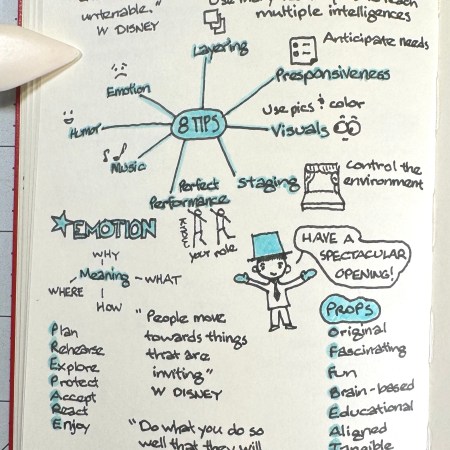 untenable."
W DISNEY
multiple intelligences
Layering
Anticipate needs
Responsiveness
Emotion
Use pics & color
8 TIPS
Humor
Visuals
Music
Staging
Control the
environment
Perfect
Performance
KNOW
your role
EMOTION
WHY
Meaning - WHAT
WHERE
HOW
HAVE A
SPECTACULAR
OPENING!
Plan
Rehearse
Explore
Protect
Accept
React
Enjoy
"People move
towards things
that are
inviting"
W DISNEY
"Do what you do so
well that they will
PROPS
Original
Fascinating
Fun
Brain-based
Educational
Aligned
Tangible